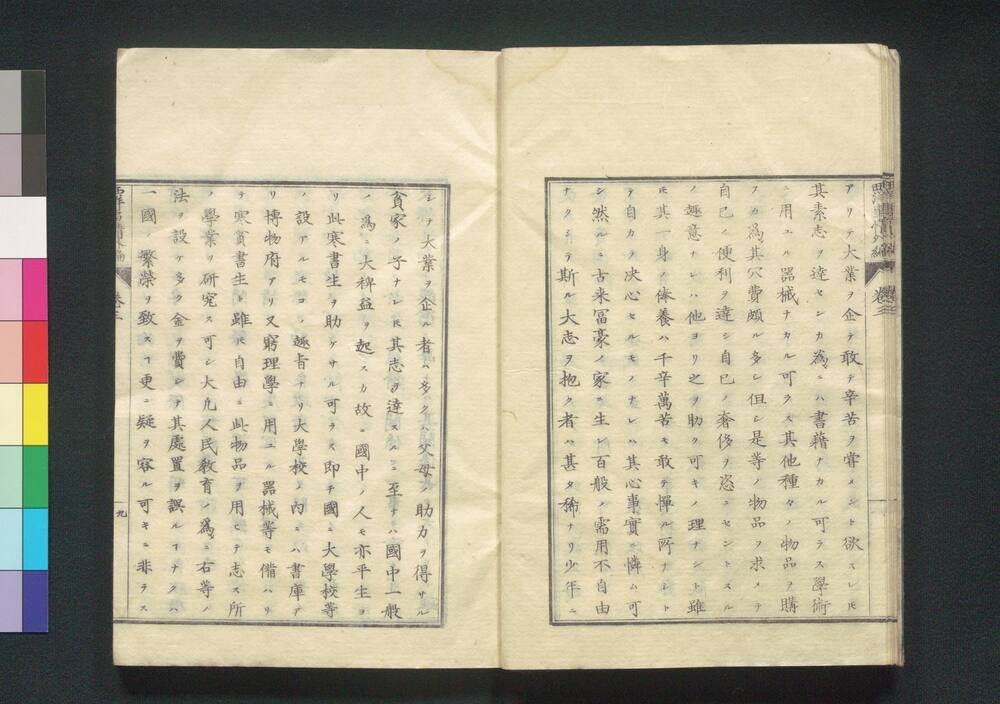 アリテ大業ヲ企テ敢テ辛苦ヲ嘗メント欲スレ𪜈
其素志ヲ達センカ為ニハ書籍ナカル可ラス學術
ニ用ユル器械ナカル可ラス其他種々ノ物品ヲ購
フカ為其冗費頗ル多シ但シ是等ノ物品ヲ求メテ
自己ノ便利ヲ達シ自己ノ奢侈ヲ恣ニセントスル
ノ趣意ナレハ他ヨリ之ヲ助ク可キノ理ナシト雖
𪜈其一身ノ俸養ハ千辛萬苦モ敢テ憚ル所ナシト
テ自カラ决心セルモノナレハ其心事實ニ憐ム可
シ然ルニ古来冨豪ノ家ニ生レ百般ノ需用不自由
ナクシテ斯ル大志ヲ抱ク者ハ甚タ稀ナリ少年ニ
西洋事情外編
卷之三
シテ大業ヲ企ル者ハ多クハ父母ノ助力ヲ得サル
貧家ノ子ナレ𪜈其志ヲ達スルニ至テハ國中一般
ノ為ニ大裨益ヲ起スカ故ニ國中ノ人モ亦平生ヨ
リ此寒書生ヲ助ケサル可ラス即チ國ニ大學校等
ノ設アルモコノ趣旨ナリ大學校ノ内ニハ書庫ア
リ博物府アリ又窮理學ニ用ユル器械等モ備ハリ
テ寒貧書生ト雖𪜈自由ニ此物品ヲ用ヒテ志ス所
ノ學業ヲ研究ス可シ大凡人民教育ノ為ニ右等ノ
法ヲ設ケ多ク金ヲ費シテ其處置ヲ誤ルヿナクハ
一國ノ繁榮ヲ致スヿ更ニ疑ヲ容ル可キニ非ラス
卷三
九